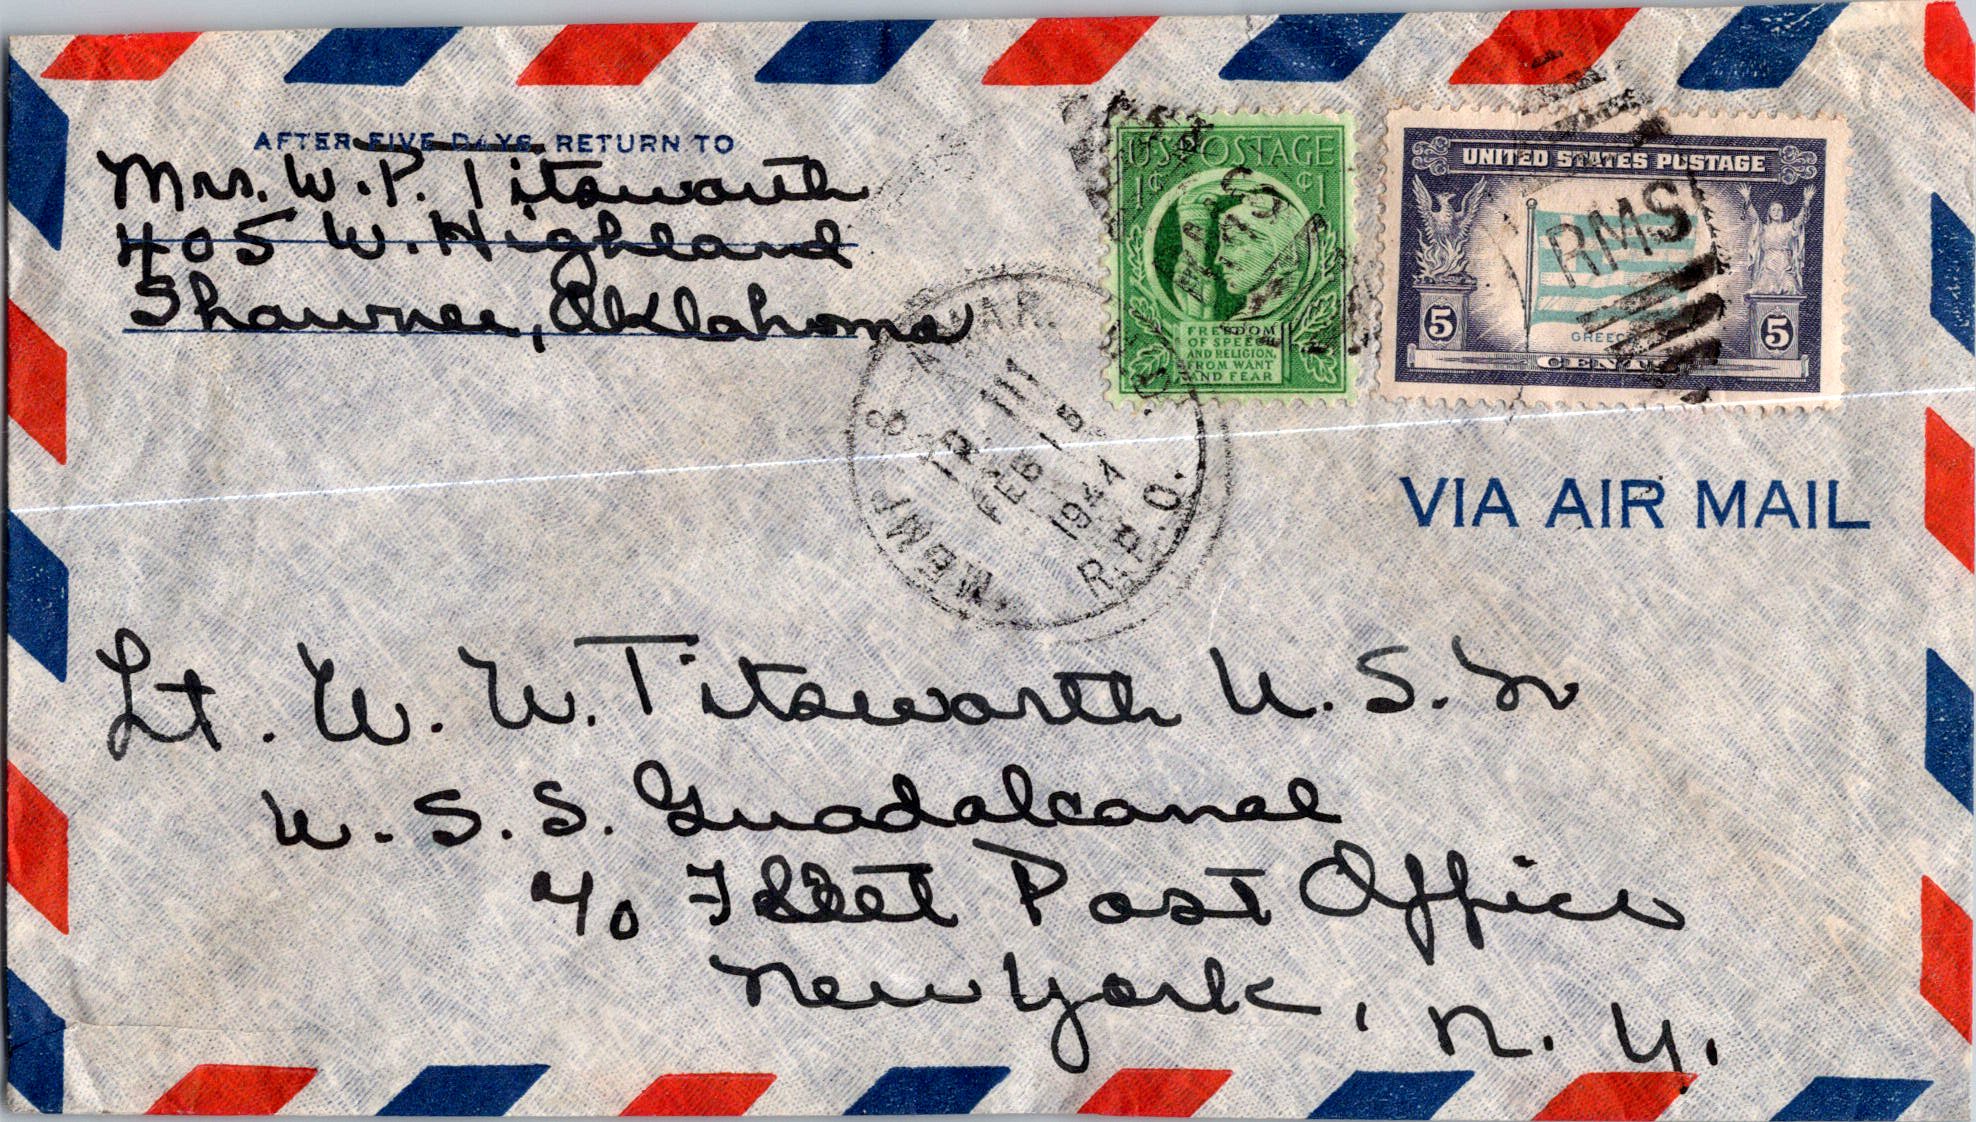 AFTER FIVE DAYS, RETURN TO
Mrs. W. P. Titsworth
405 W. Highland
Shawnee, Oklahoma
U.S. POSTAGE
1¢ ¢1
FREEDOM
OF SPEECH
AND RELIGION,
FROM WANT
AND FEAR
UNITED STATES POSTAGE
RMS
5 5
GREECE
CENTS
MEMP. & AMAR.
FEB 15
1944
R.P.O.
VIA AIR MAIL
Lt. W. W. Titsworth U. S. N
U. S. S. Guadalcanal
℅ Fleet Post Office
New York, N. Y.